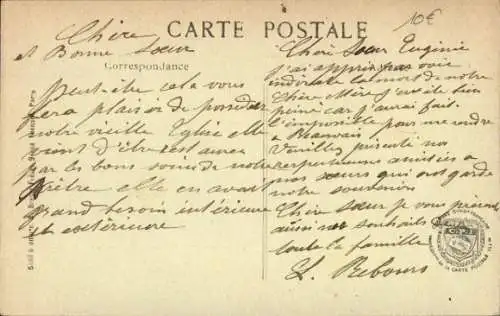 10€
CARTE POSTALE
Correspondance
Chère
et Bonne Sœur
Peut-être cela vous
fera plaisir de posséder
notre vieille Eglise elle
vient d'être restaurée
par les bons soins de notre
Prêtre elle en avait
grand besoin intérieure
et extérieure
Chère Sœur Eugénie
j'ai appris par voie
indirecte la mort de notre
Chère Mère j'ai été bien
peiné car j'aurai fait
l'impossible pour me rendre
à
Veuillez présenté nos
respectueuses amitiés à
nos sœurs qui ont garde
notre souvenir
Chère Sœur je vous présente
aussi nos souhaits
toute la famille
L. Rebours